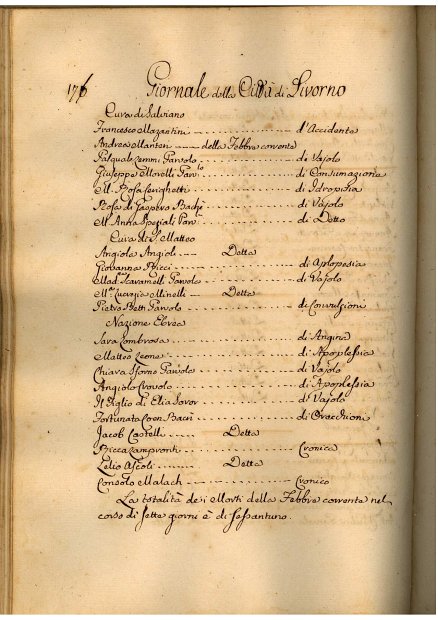 176 Giornale della Città di Livorno
Cura di Salviano
Francesco Mazantini d'Accidente
Andrea Manteri della Febbre corrente
Pasquale Zemmi Parvolo di Vajolo
Giuseppe Morelli Parvlo di Consumazione
M. Rosa Serighetti di Idropisia
Rosa di Gaspero Bachi di Vajolo
M. Anna Speziali Parv di Detto
Cura di S. Matteo
Angiola Angioli Detta
Giovanna Ricci di Aplopesia
Madna Scaramelli Parvolo di Vajolo
Ma Lucrezia Minelli Detta
Pietro Betti Parvolo di Convulzioni
Nazione Ebrea
Sara Lombrosa di Angina
Matteo Leone di Apoplessia
Chiara Sforno Parvolo di Vajolo
Angiolo di Apoplessia
Il Figlio di Elia Soror di Vajolo
Fortunata Coen Bacri di Orecchioni
Jacob Castelli Detta
Ricca Zampronti Cronica
Lelio Ascoli Detta
Consolo Malach Cronico
La totalità dei Morti della Febbre corrente nel
corso di sette giorni è di Sessantuno.